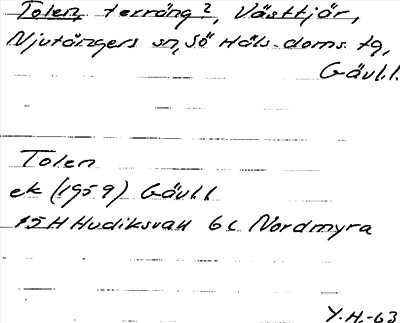 Tolen, terräng?, Västtjär,
Njutångers sn, Sö Häls. doms. tg,
Gävl.l.
Tolen
ek (1959) Gävl.l
15H Hudiksvall 6c Nordmyra
Y.H.-63